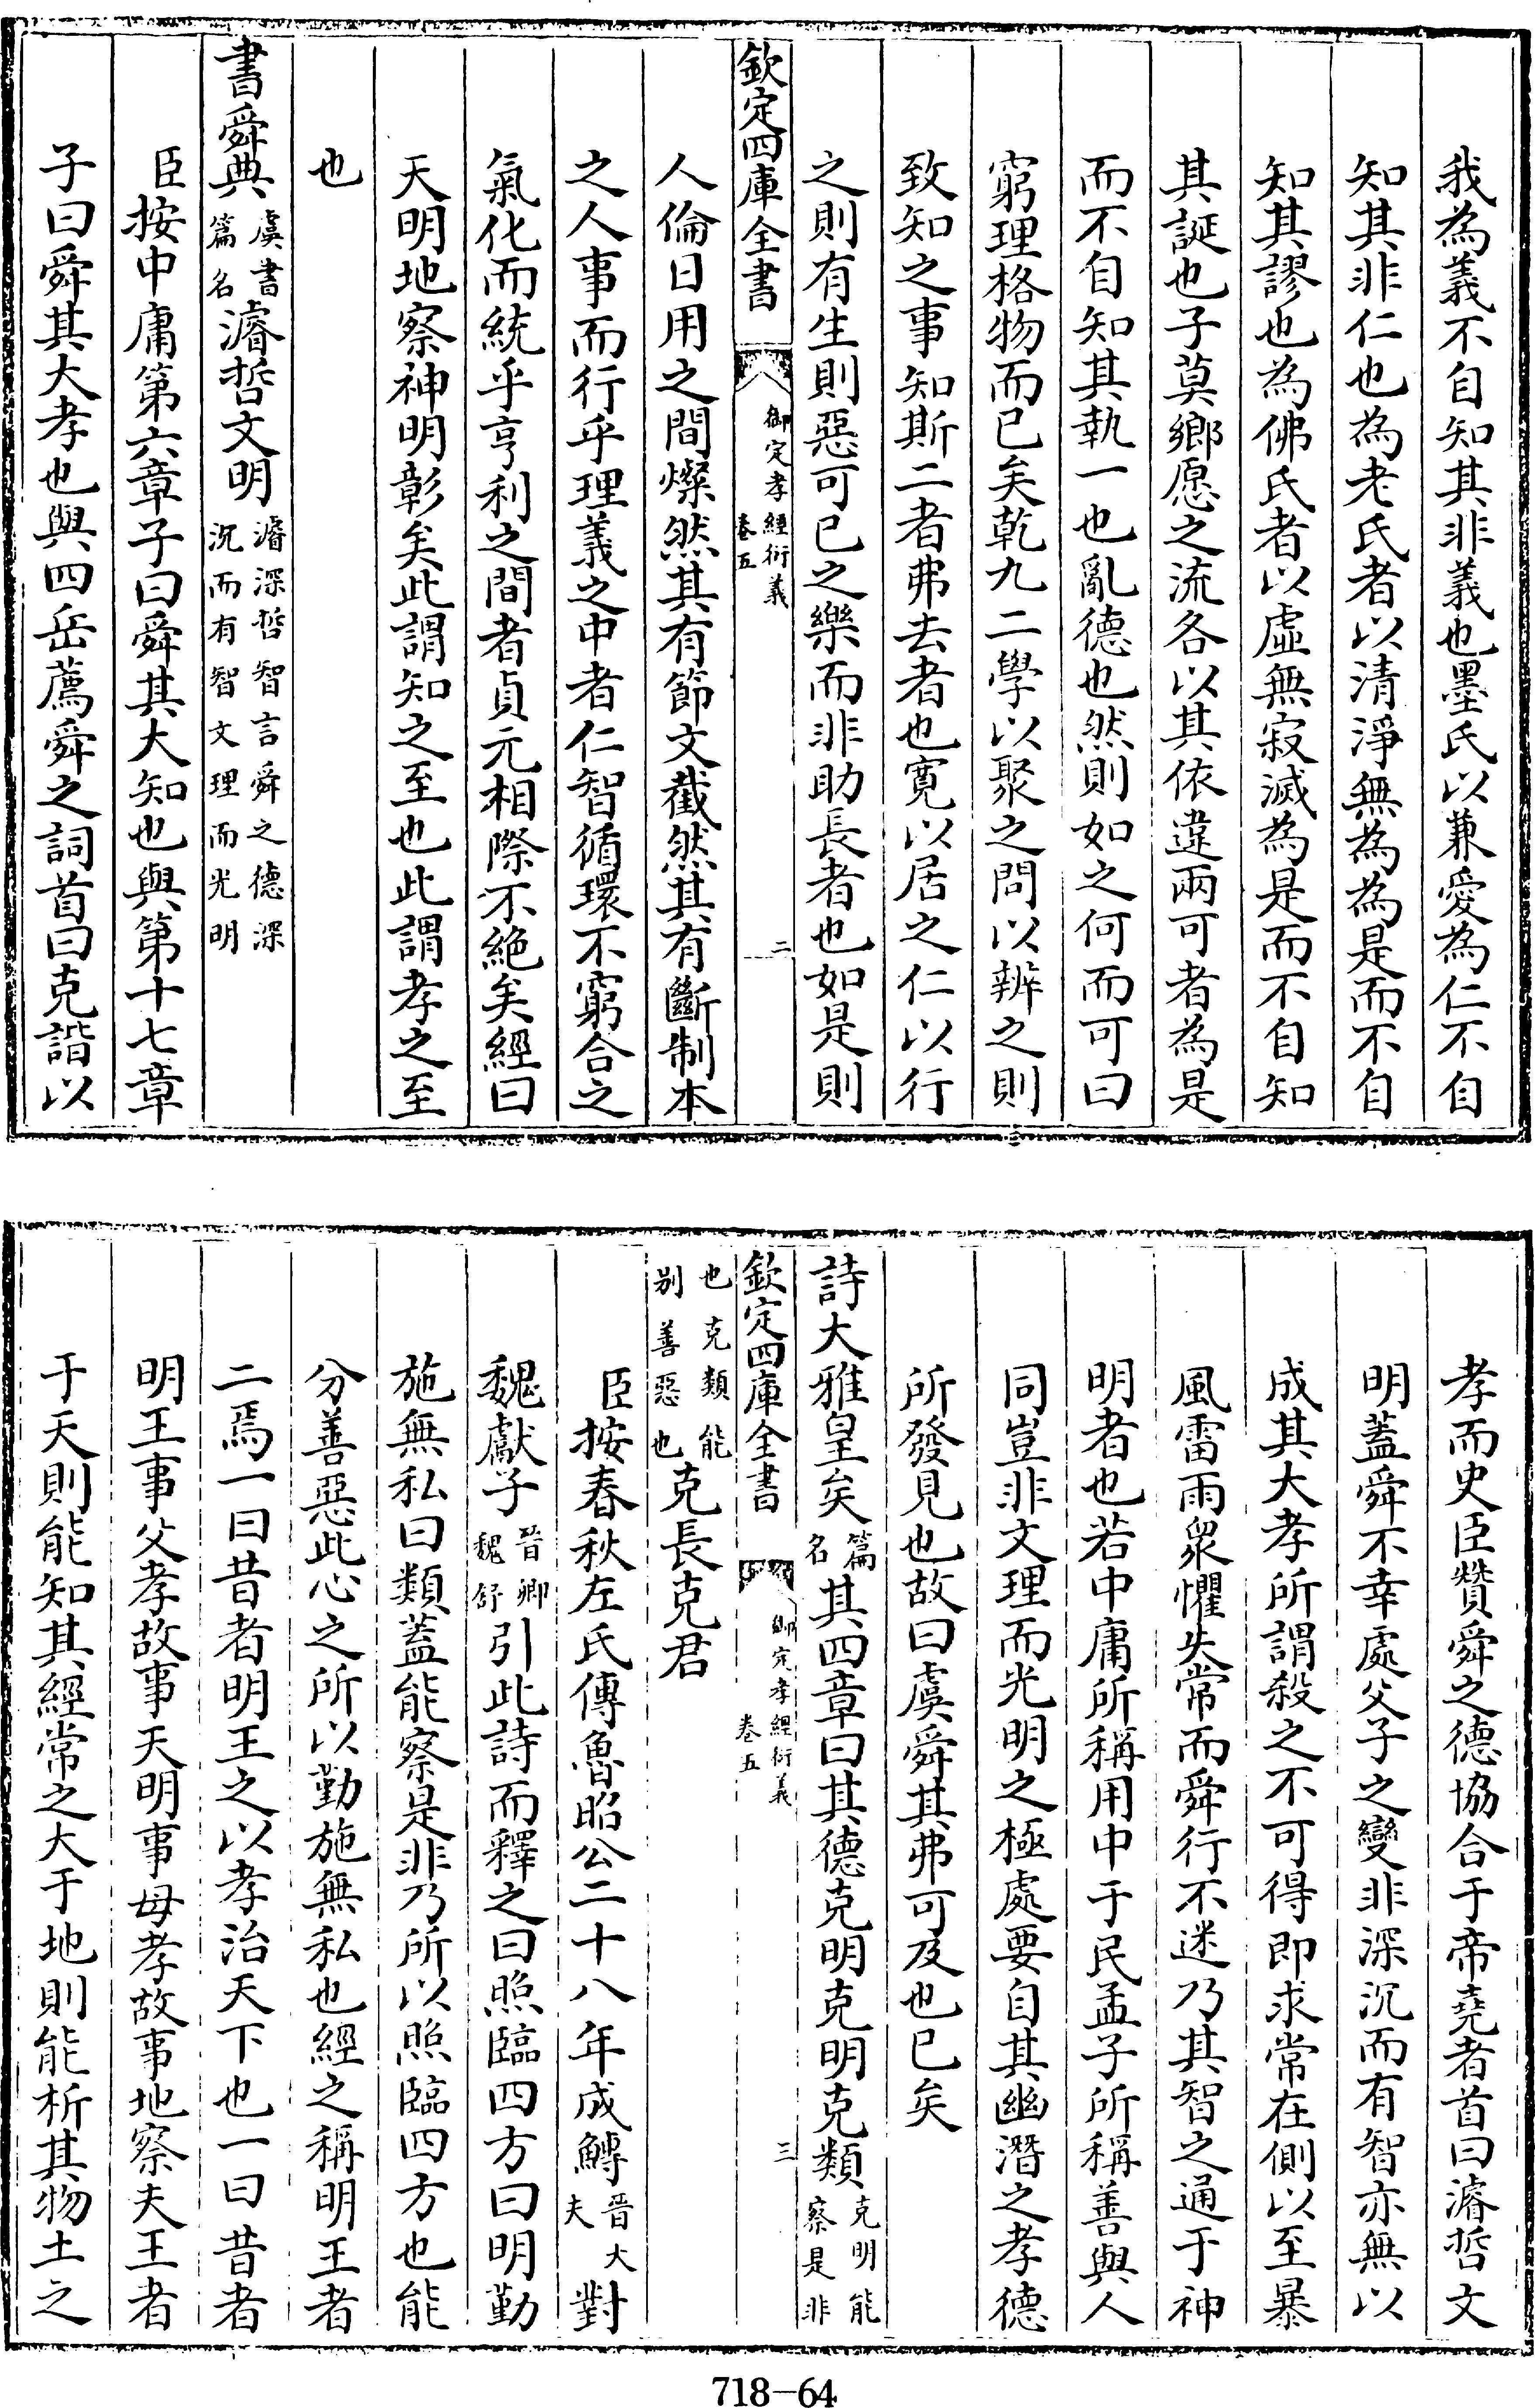 我為義不自知其非義也墨氏以兼愛為仁不自
知其非仁也為老氏者以清淨無為為是而不自
知其謬也為佛氏者以虛無寂滅為是而不自知
其誕也子莫鄉愿之流各以其依違兩可者為是
而不自知其執一也亂德也然則如之何而可曰
窮理格物而已矣乾九二學以聚之問以辨之則
致知之事知斯二者弗去者也寛以居之仁以行
之則有生則惡可已之樂而非助長者也如是則
欽定四庫全書 御定孝經衍義 卷五 二
人倫日用之間燦然其有節文截然其有斷制本
之人事而行乎理義之中者仁智循環不窮合之
氣化而統乎亨利之間者貞元相際不絶矣經曰
天明地察神明彰矣此謂知之至也此謂孝之至
也
書舜典虞書篇名濬哲文明濬深哲智言舜之德深沉而有智文理而光明
臣按中庸第六章子曰舜其大知也與第十七章
子曰舜其大孝也與四岳薦舜之詞首曰克諧以
孝而史臣贊舜之德協合于帝堯者首曰濬哲文
明蓋舜不幸處父子之變非深沉而有智亦無以
成其大孝所謂殺之不可得即求常在側以至暴
風雷雨衆懼失常而舜行不迷乃其智之通于神
明者也若中庸所稱用中于民孟子所稱善與人
同豈非文理而光明之極處要自其幽潛之孝德
所發見也故曰虞舜其弗可及也已矣
詩大雅皇矣篇名其四章曰其德克明克明克類克明能察是非
欽定四庫全書 御定孝經衍義 卷五 三
也克類能别善惡也克長克君
臣按春秋左氏傳魯昭公二十八年成鱄晉大夫對
魏獻子晉卿魏舒引此詩而釋之曰照臨四方曰明勤
施無私曰類蓋能察是非乃所以照臨四方也能
分善惡此心之所以勤施無私也經之稱明王者
二焉一曰昔者明王之以孝治天下也一曰昔者
明王事父孝故事天明事母孝故事地察夫王者
于天則能知其經常之大于地則能析其物土之
718-64